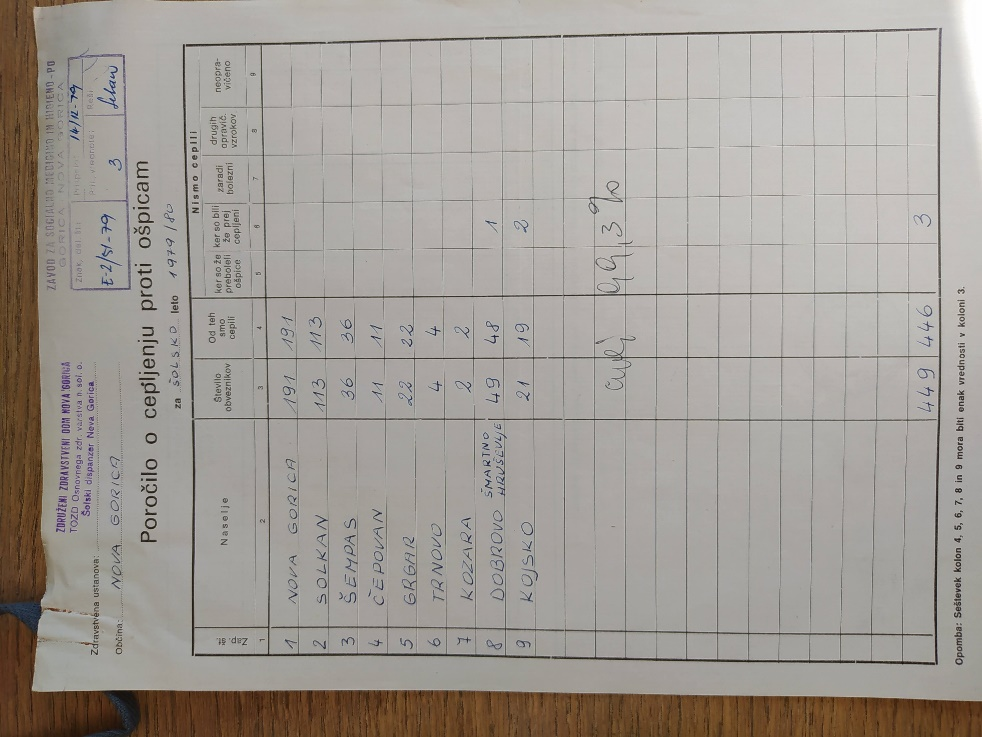 ZDRUŽENI ZDRAVSTVENI DOM NOVA GORICA
TOZD Osnovnega zdr. varstva n. sol. o.
Šolski dispanzer Nova Gorica
ZAVOD ZA SOCIALNO MEDICINO IN HIGIENO - PO
GORICA NOVA GORICA
14/12-79
E-2/51-79
3
Zdravstvena ustanova:
Občina: NOVA GORICA
Poročilo o cepljenju proti ošpicam
za ŠOLSKO leto 1979/80
Nismo cepili
Zap. št. Naselje Število obveznikov Od teh smo cepili ker so že preboleli ošpice ker so bili že prej cepljeni zaradi bolezni drugih opravič. vzrokov neopra- vičeno
1 2 3 4 5 6 7 8 9
1 NOVA GORICA 191 191
2 SOLKAN 113 113
3 ŠEMPAS 36 36
4 ČEPOVAN 11 11
5 GRGAR 22 22
6 TRNOVO 4 4
7 KOZARA 2 2
8 DOBROVO ŠMARTNO HRUŠEVLJE 49 48 1
9 KOJSKO 21 19 2
99,3%
449 446 3
Opomba: Seštevek kolon 4, 5, 6, 7, 8 in 9 mora biti enak vrednosti v koloni 3.